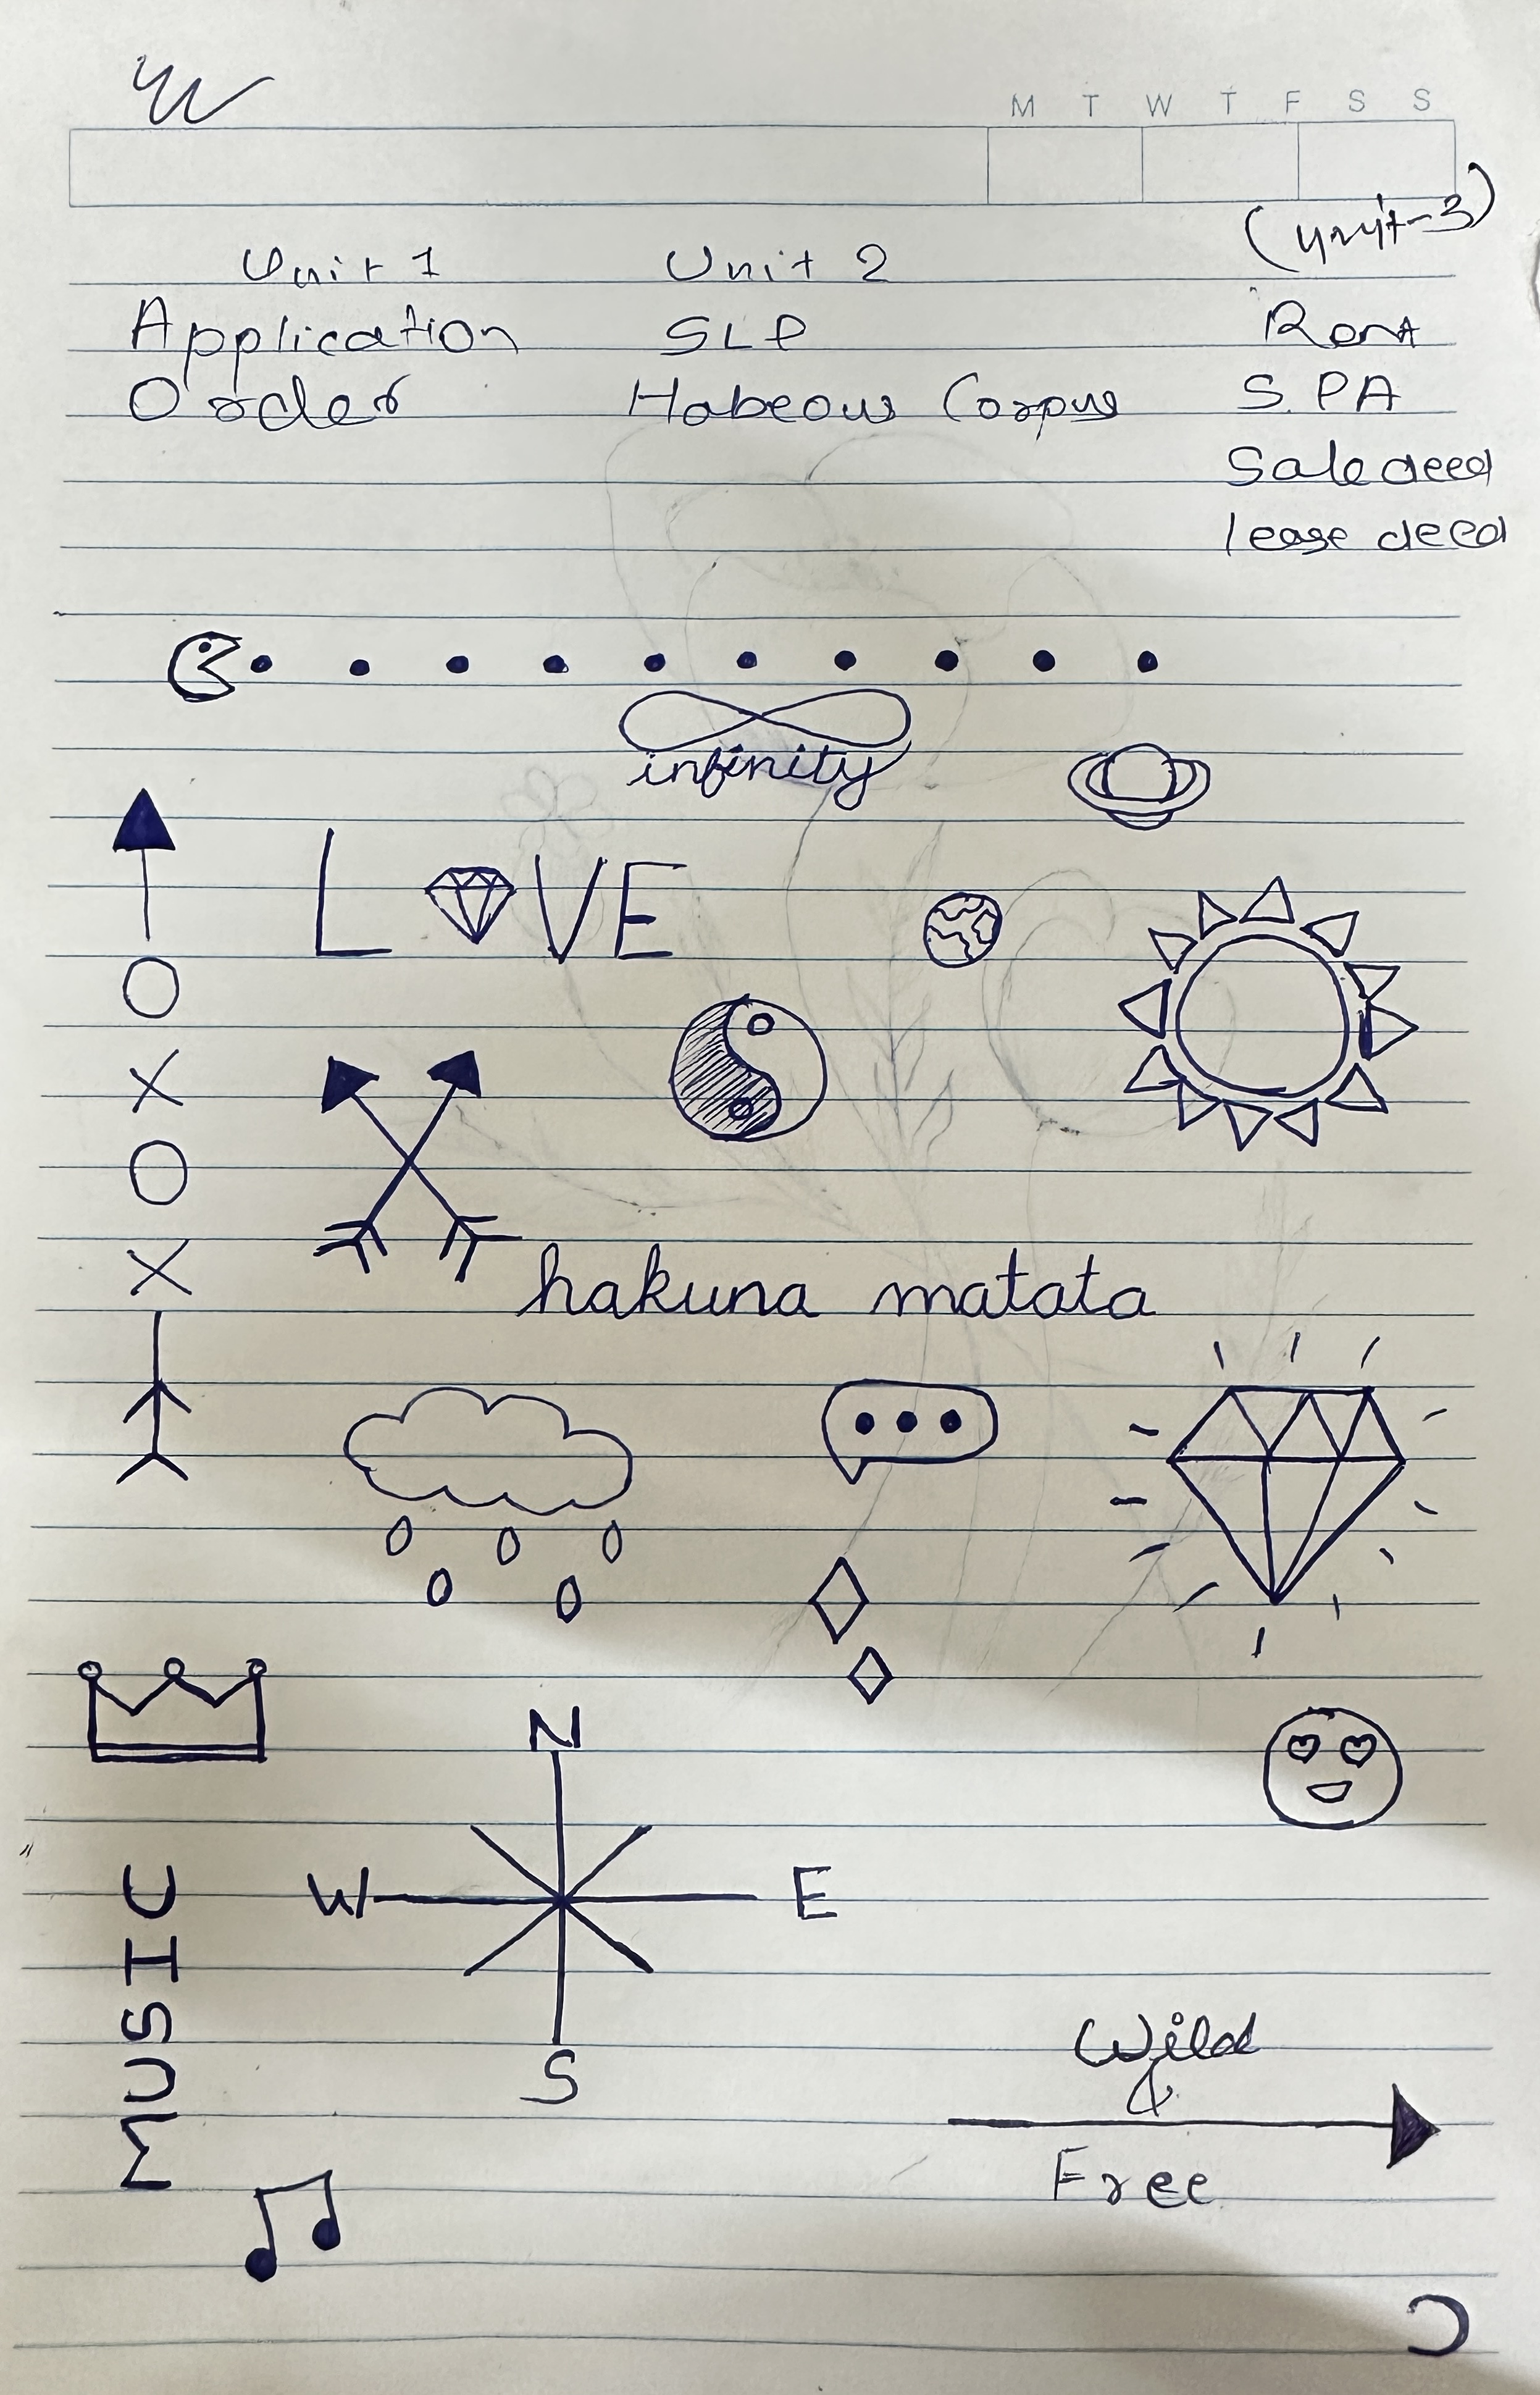 M T W T F S S
Unit 1 Unit 2 (Unit-3)
Application SLP Rent
Order Habeous Corpus S.PA
Sale deed
lease deed
infinity
L VE
O
X
O
X
hakuna matata
N
W E
S
MUSIC
Wild
&
Free